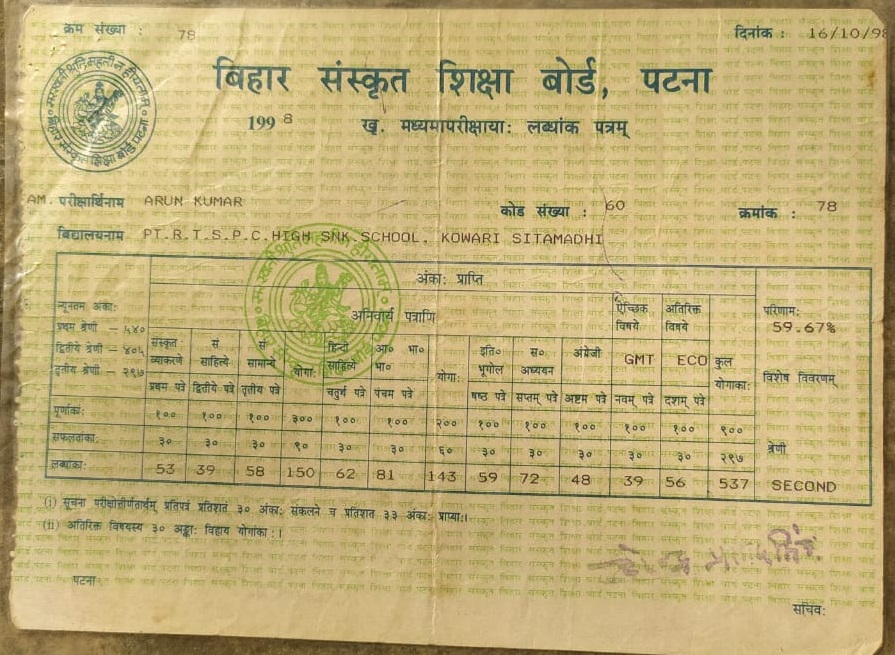 क्रम संख्या : 78
दिनांक : 16/10/98
बिहार संस्कृत शिक्षा बोर्ड, पटना
1998 ख. मध्यमापरीक्षायाः लब्धांक पत्रम्
AM. परीक्षार्थिनाम ARUN KUMAR कोड संख्या : 60 क्रमांक : 78
विद्यालयनाम PT.R.T.S.P.C.HIGH SNK.SCHOOL. KOWARI SITAMADHI
अंकाः प्राप्ति
न्यूनतम अंकाः अनिवार्य पत्राणि ऐच्छिक विषये अतिरिक्त विषये परिणामः
प्रथम श्रेणी – ५४० 59.67%
द्वितीये श्रेणी – ४०५ संस्कृत व्याकरणे सं साहित्ये सं सामान्ये योगाः हिन्दी साहित्ये आ० भा० भा० योगाः इति० भूगोल स० अध्ययन अंग्रेजी GMT ECO कुल योगाकाः
तृतीय श्रेणी – २९७ विशेष विवरणम्
प्रथम पत्रे द्वितीये पत्रे तृतीय पत्रे चतुर्थ पत्रे पंचम पत्रे षष्ठ पत्रे सप्तम् पत्रे अष्टम पत्रे नवम् पत्रे दशम् पत्रे
पूर्णांकाः १०० १०० १०० ३०० १०० १०० २०० १०० १०० १०० १०० १०० ९००
सफलतांकाः ३० ३० ३० ९० ३० ३० ६० ३० ३० ३० ३० ३० २९७ श्रेणी
लब्धांकाः 53 39 58 150 62 81 143 59 72 48 39 56 537 SECOND
(i) सूचना परीक्षोत्तीर्णतार्थम् प्रतिपत्रं प्रतिशतं ३० अंकाः संकलने च प्रतिशत ३३ अंकाः प्राप्याः।
(ii) अतिरिक्त विषयस्य ३० अङ्काः विहाय योगांकाः।
पटना
सचिवः